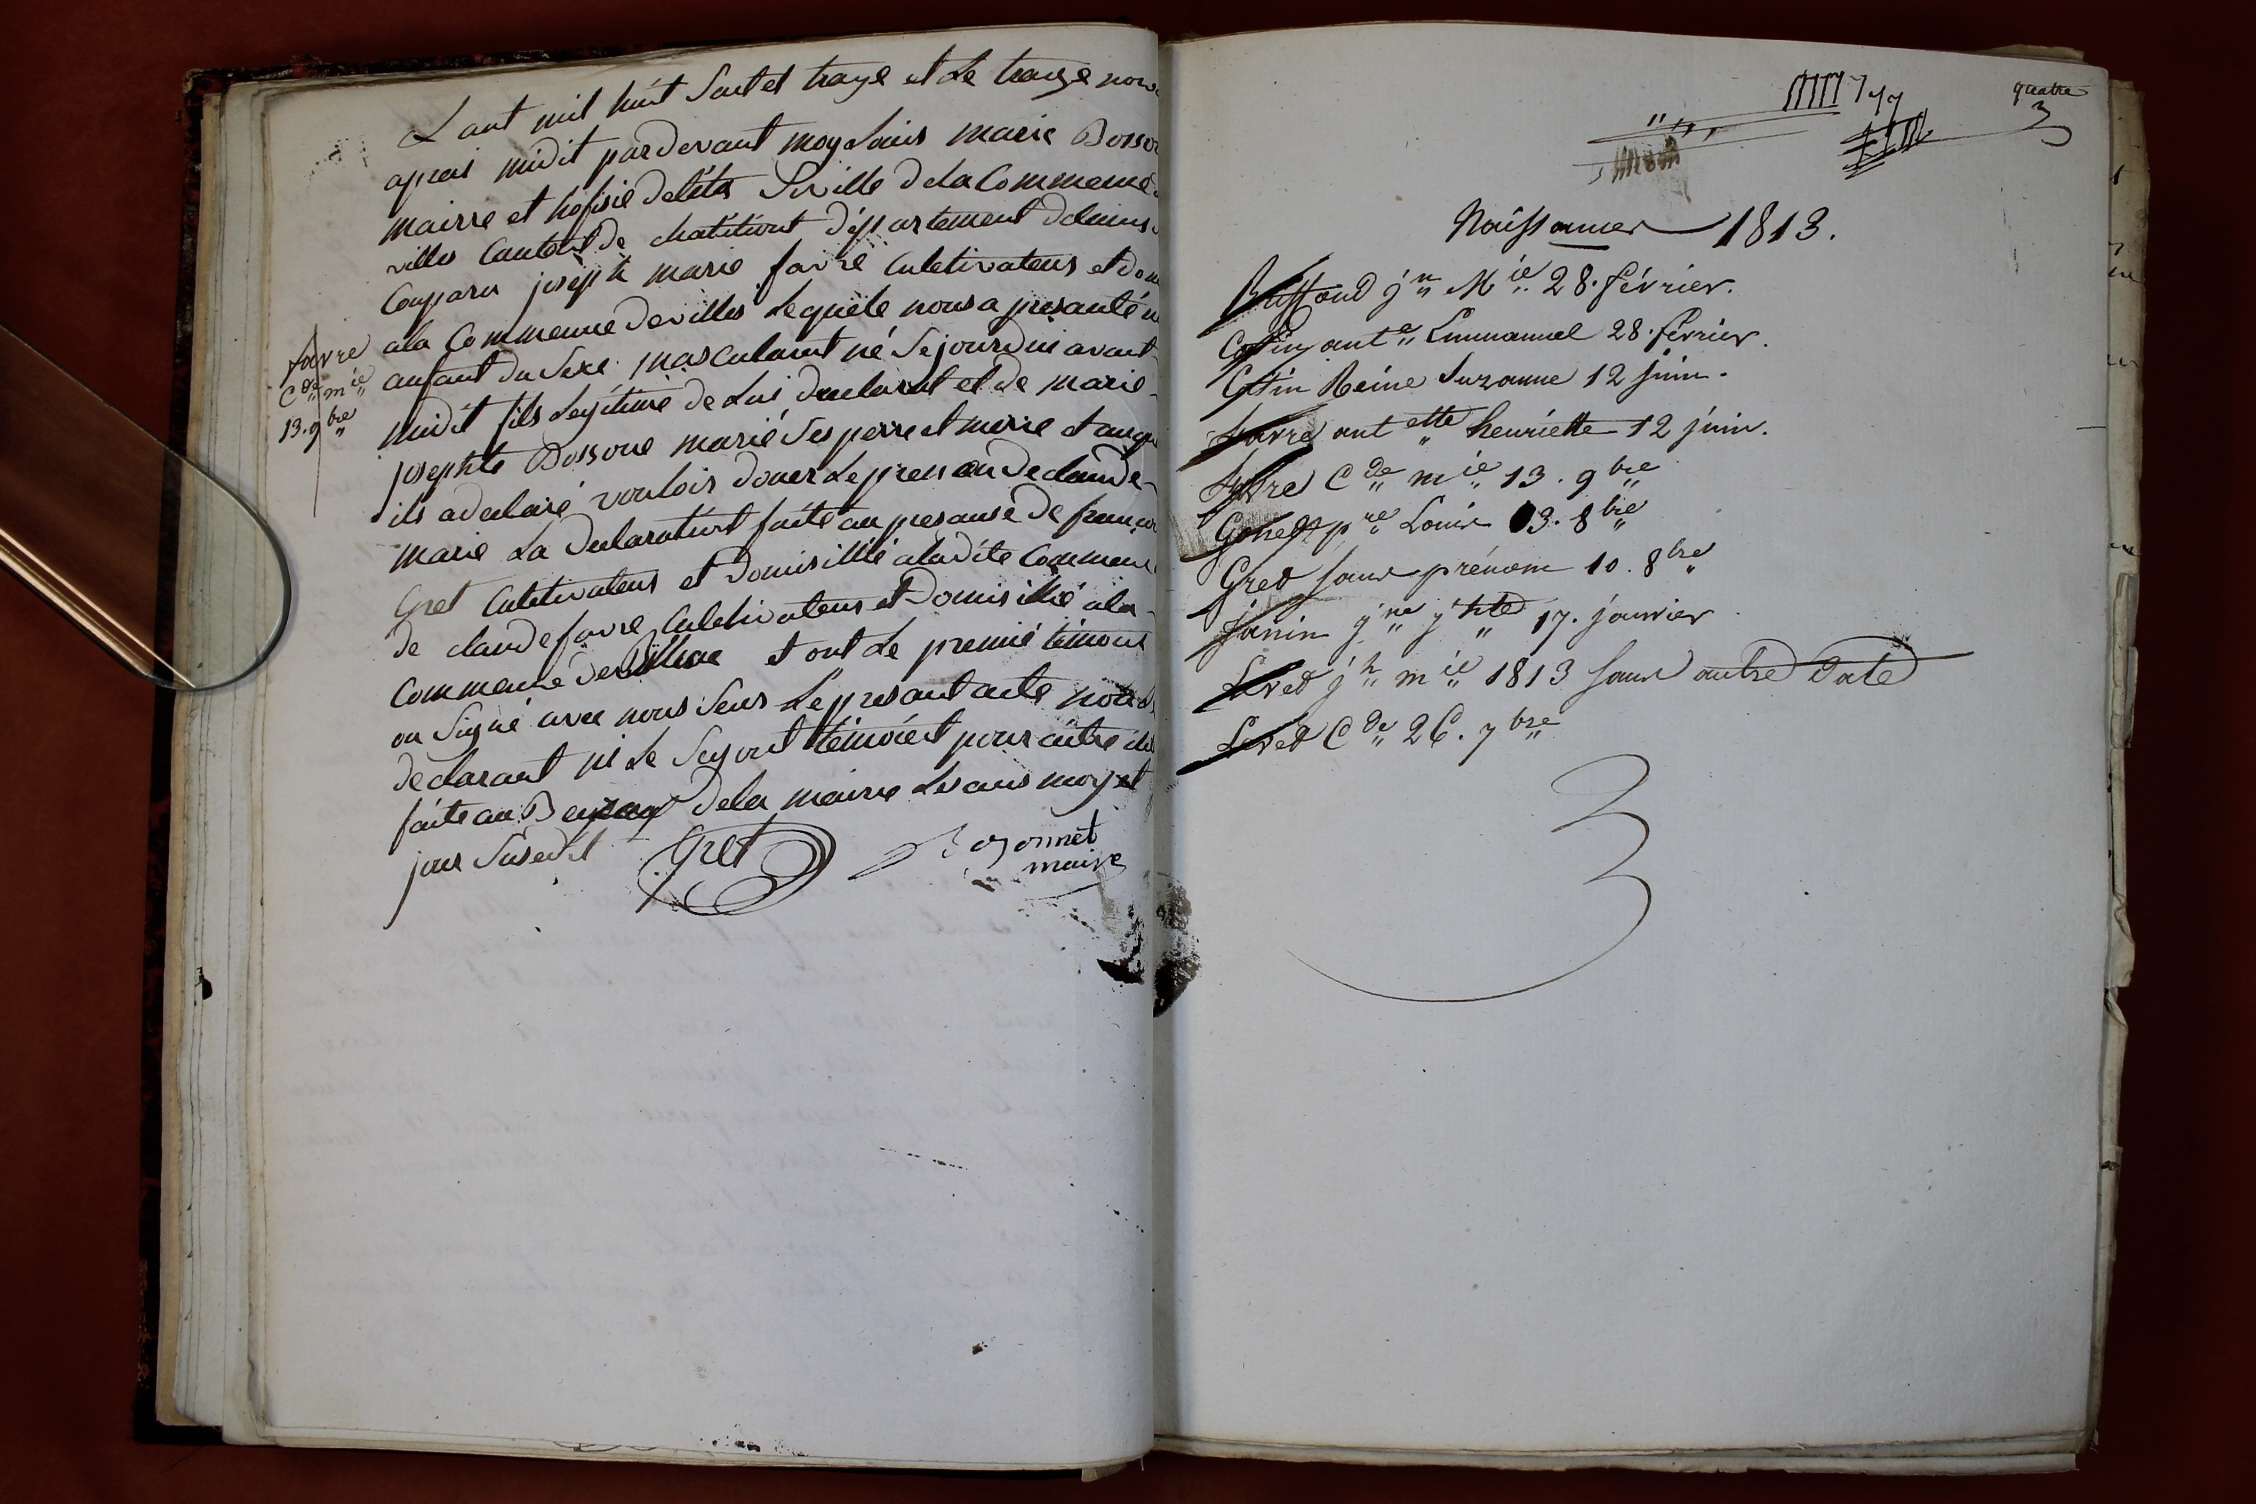 L ant mil huit Sant et traze et Le traize nov
apreis midit pardevant moy Louis marie Bosso
mairre et hofisié deléta Siville dela Commeune
villes Canton de chatition Département delains
Comparu joseph marie favre Culetivateurs et dom
ala Commeune devilles Lequele nous a presanté u
anfant du Sexe masculaint né Sejourdui avant
midit fils Legitime de Lui declarant et de marie
josephte Bossone marié Ses perre et merre et auque
ils a declaré vouloir doner Le prenon de claude
marie La declaration faite au presanse de françoi
Gret Culetivateurs et domisillié aladite Commeune
de claude favre Culetivateurs et Domisillié ala
Commeune devilles et ont Le premié témoint
on Signé avec nous Seus Le presant acte non le
declarant ni Le Segont témoient pour aître ille
faite au Bureau dela mairie Les ans moy et
jour Susedit Gret Bozonnet
maire
favre
Cde mie
13. 9bre
quatre
3
Naissances 1813.
Buffond jn Mie 28. février.
Cottin ante Emmanuel 28. février.
Cottin Reine Suzanne 12 juin.
favre antette henriette 12 juin.
favre Cde mie 13. 9bre
Gonet pre Louis 13. 8bre
Gret sans prénom 10. 8bre
janin jne jhte 17. janvier
Livet jh mie 1813 sans autre date
Livet Cde 26. 7bre
3